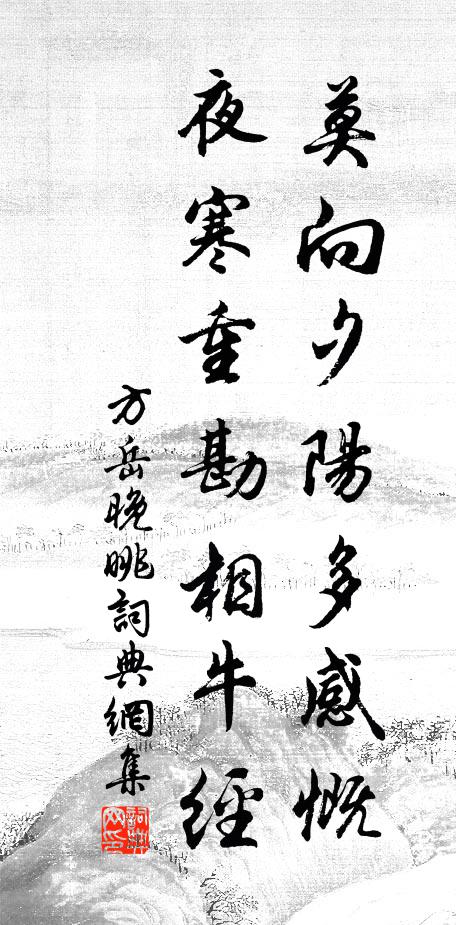 莫向夕陽多感慨
夜寒重勘相牛經
方岳晚眺詞典網集